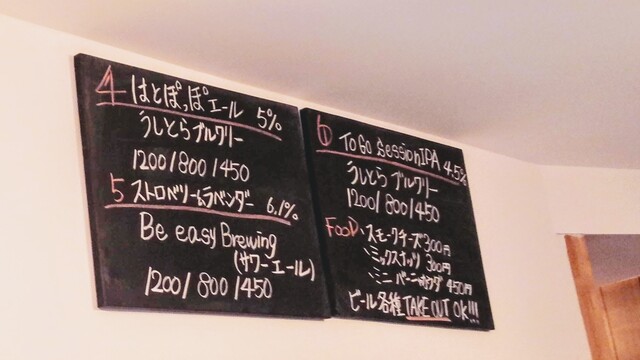 4 はとぽっぽエール 5%
うしとらブルワリー
1200/800/450
5 ストロベリー&ラベンダー 6.1%
Be easy Brewing
(サワーエール)
1200/800/450
6 To Go Session IPA 4.5%
うしとらブルワリー
1200/800/450
FOOD・スモークチーズ300円
・ミックスナッツ 300円
・ミニ バーニャカウダ 450円
ビール各種 TAKE OUT OK!!!